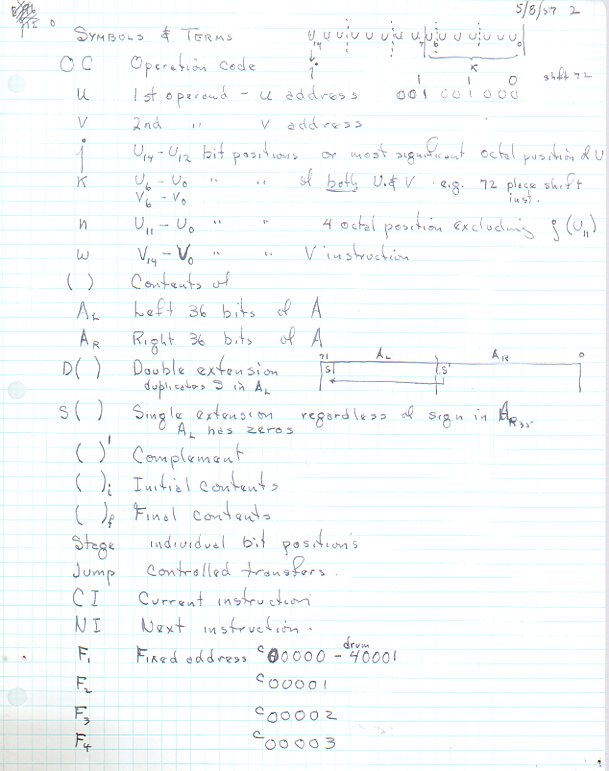 5/8/57 2
SYMBOLS & TERMS
U U U U U U U U U U U U U U U
14 7 6 0
j K
OC Operation code
1 1 0 shift 72
001 001 000
U 1st operand - U address
V 2nd " V address
j U14 - U12 bit positions or most significant octal position of U
K U6 - U0 " " of both U & V e.g. 72 place shift
V6 - V0 inst.
n U11 - U0 " " 4 octal position excluding j (U11)
w V14 - V0 " " V instruction
( ) Contents of
AL Left 36 bits of A
AR Right 36 bits of A
71 AL AR 0
D( ) Double extension S S'
duplicates S in AL
S( ) Single extension regardless of sign in AR35.
AL has zeros
( )' Complement
( )i Initial contents
( )f Final contents
Stage individual bit positions
Jump controlled transfers.
CI Current instruction
NI Next instruction.
drum
F1 Fixed address c00000 - 40001
F2 c00001
F3 c00002
F4 c00003